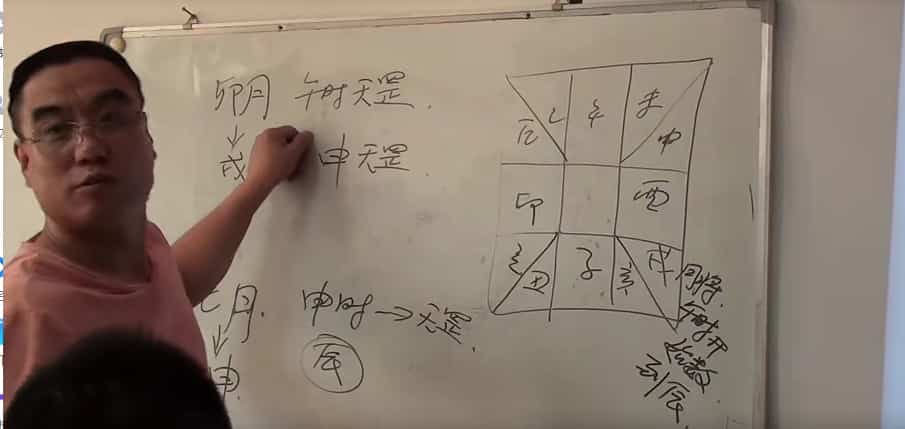 卯月 午时天罡.
戌 申天罡.
七月. 申时→天罡.
申 辰
辰 巳 午 未 申
卯 酉
寅 丑 子 亥 戌
月将.
午时开
数
到辰